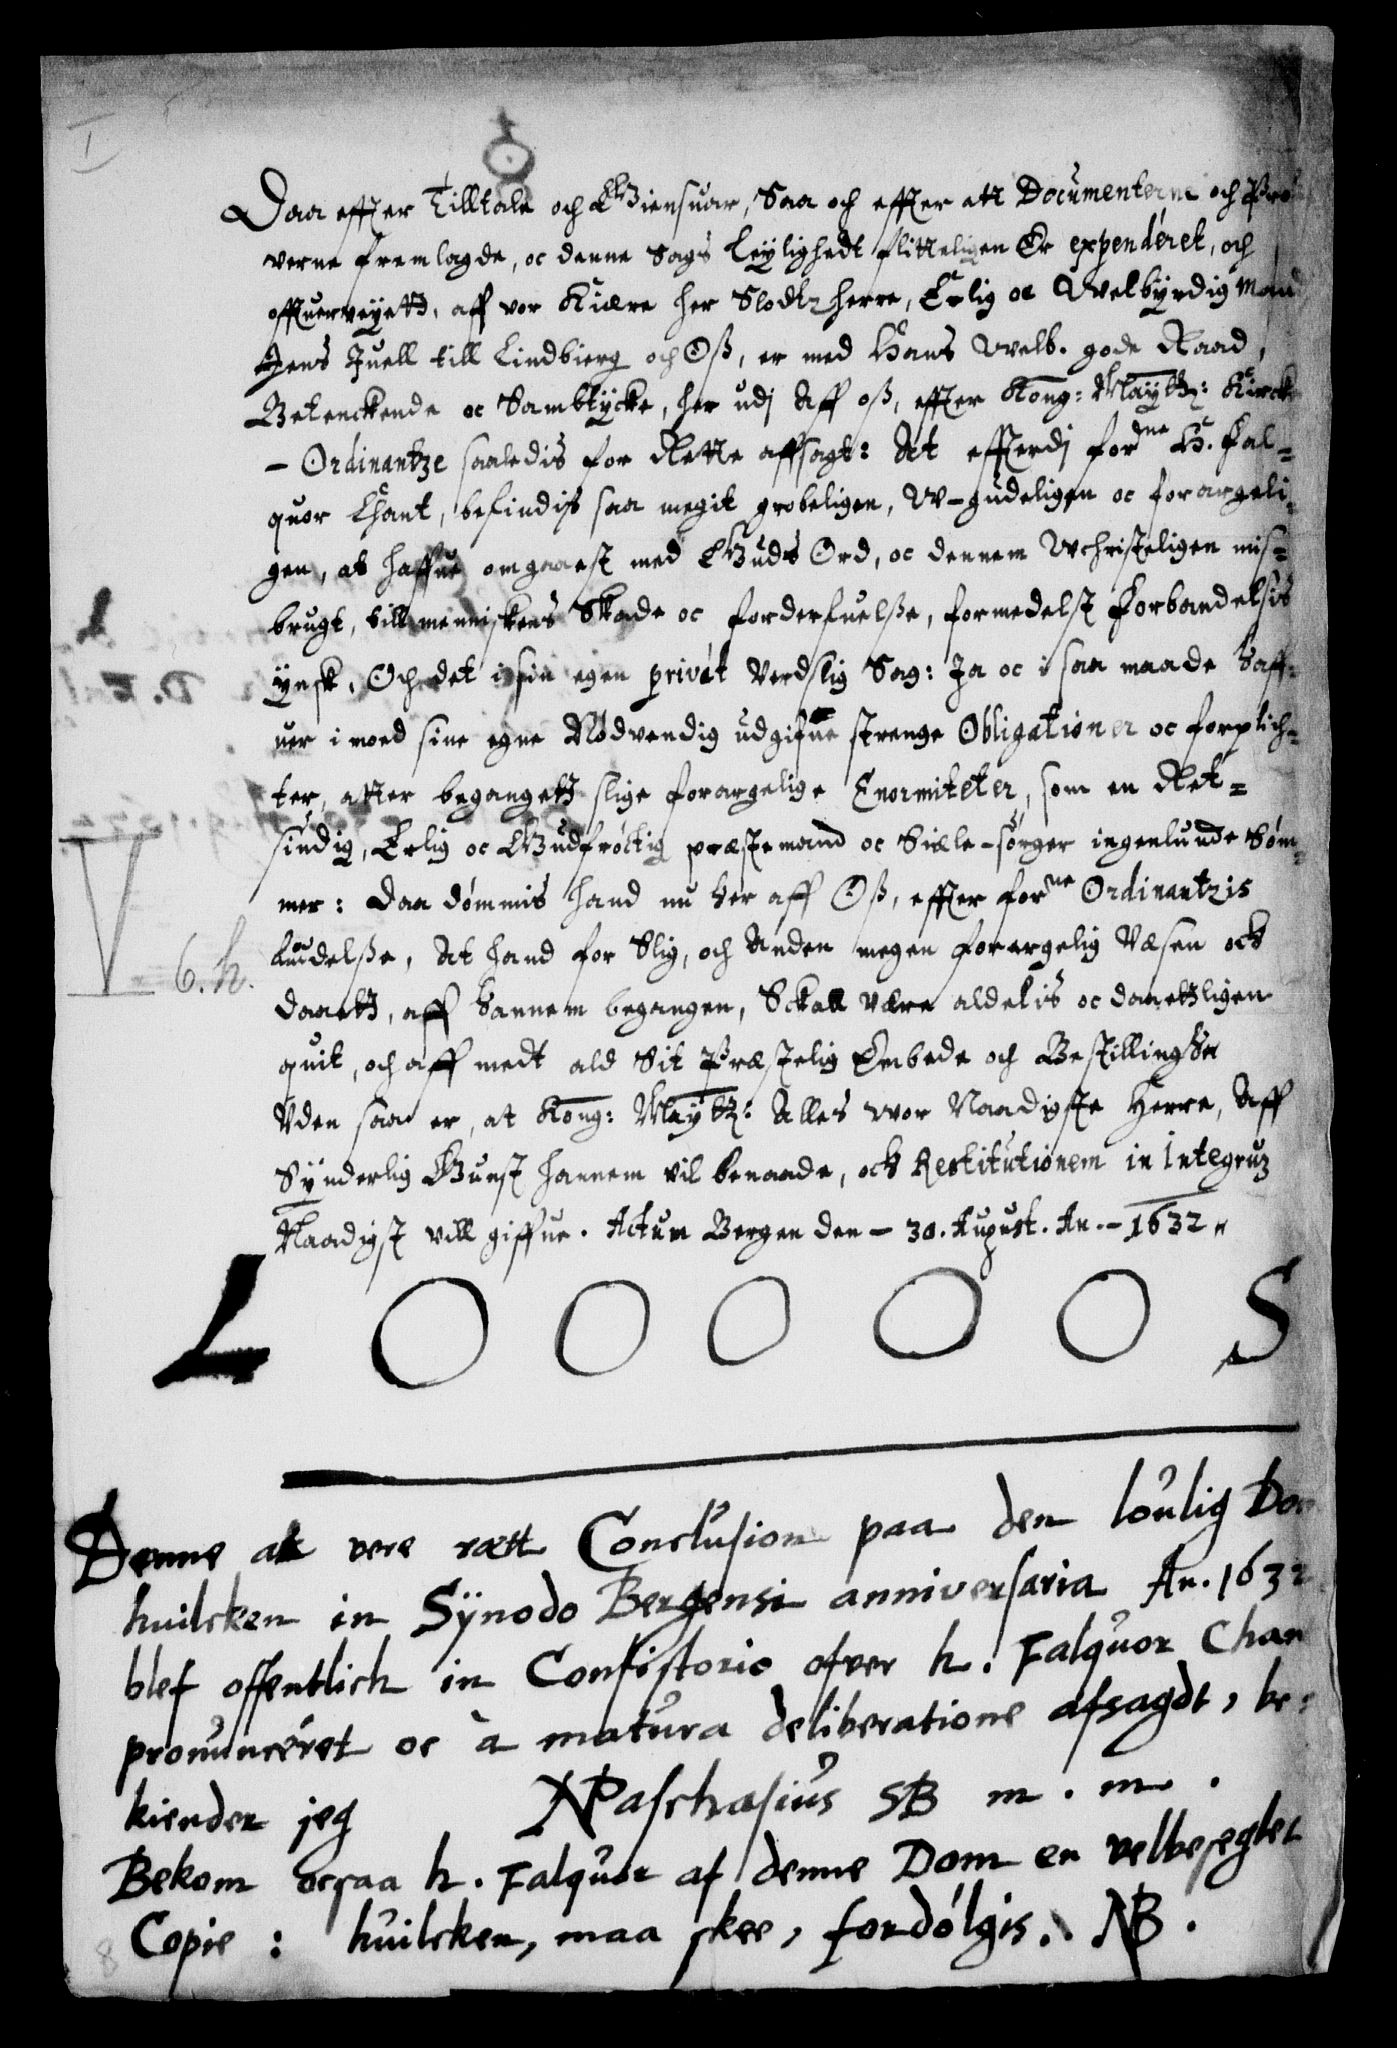 I
Daa effter Tilltale och Giensuar, Saa och effter att Documenterne och Prou
verne fremlagde, oc denne Sags Leylighedt flitteligen Er expendéret, och
offueruveyett, aff vor Kiære her Slodtzherre, Erlig oc Welbyrdig Mand
Jens Juell till Lindbierg och Oß, er med Hans Welb. gode Raad,
Betenckende oc Sambtycke, her udj Aff oß, effter Kong: Maytz: Kircke
- Ordinantze saaledis for Rette affsagt: At effterdj forne H. Fal-
quor Chant, befindis saa megit grobeligen, W-gudeligen oc forargeli-
gen, at haffue omgaaest med Guds Ord, oc dennem Uchristeligen mis-
brugt, till menniskens Skade oc forderfuelße, formedelst Forbandelsis
ynsk, Och det i sin egen privat Verdslig Sag: Ja oc i saa maade haff-
uer imoed sine egne Nødvendig udgifne strenge Obligationer oc forplich-
ter, atter begangett slige forargelige Enormiteter, som en Ret-
sindig, Erlig oc Gudfrøctig præstemand oc Siæle-sørger ingenlunde Søm-
mer: Daa dømmis hand nu her aff Oß, effter forne Ordinantzis
Liudelße, At hand for Slig, och Anden megen forargelig Væsen och
6. h.
daaett, aff hannem begangen, Schall være aldelis oc daaettligen
quit, och aff medt ald Sit Præstelig Embede och Bestillingher
Uden saa er, at Kong: Maytz: Alles vor Naadigste Herre, Aff
Synderlig Gunst hannem vil benaade, och Restitutionem in Integruz
Naadigst vill giffue. Actum Bergen den - 30. August. An. - 1632
L O O O O O S
Denne at vere rætt Conclusion paa den loulig Dom
huilcken in Synodo Bergensi anniversaria An. 1632
blef offentlich in Consistorio ofver h. Falquor Chan
pronuncéret oc à matura deliberatione afsagdt, be-
kiender jeg NPaschasius SB m. m.
Bekom ocsaa h. Falquor af denne Dom en velbeseglet
Copie: huilcken, maa skee, fordólgis. NB.
8